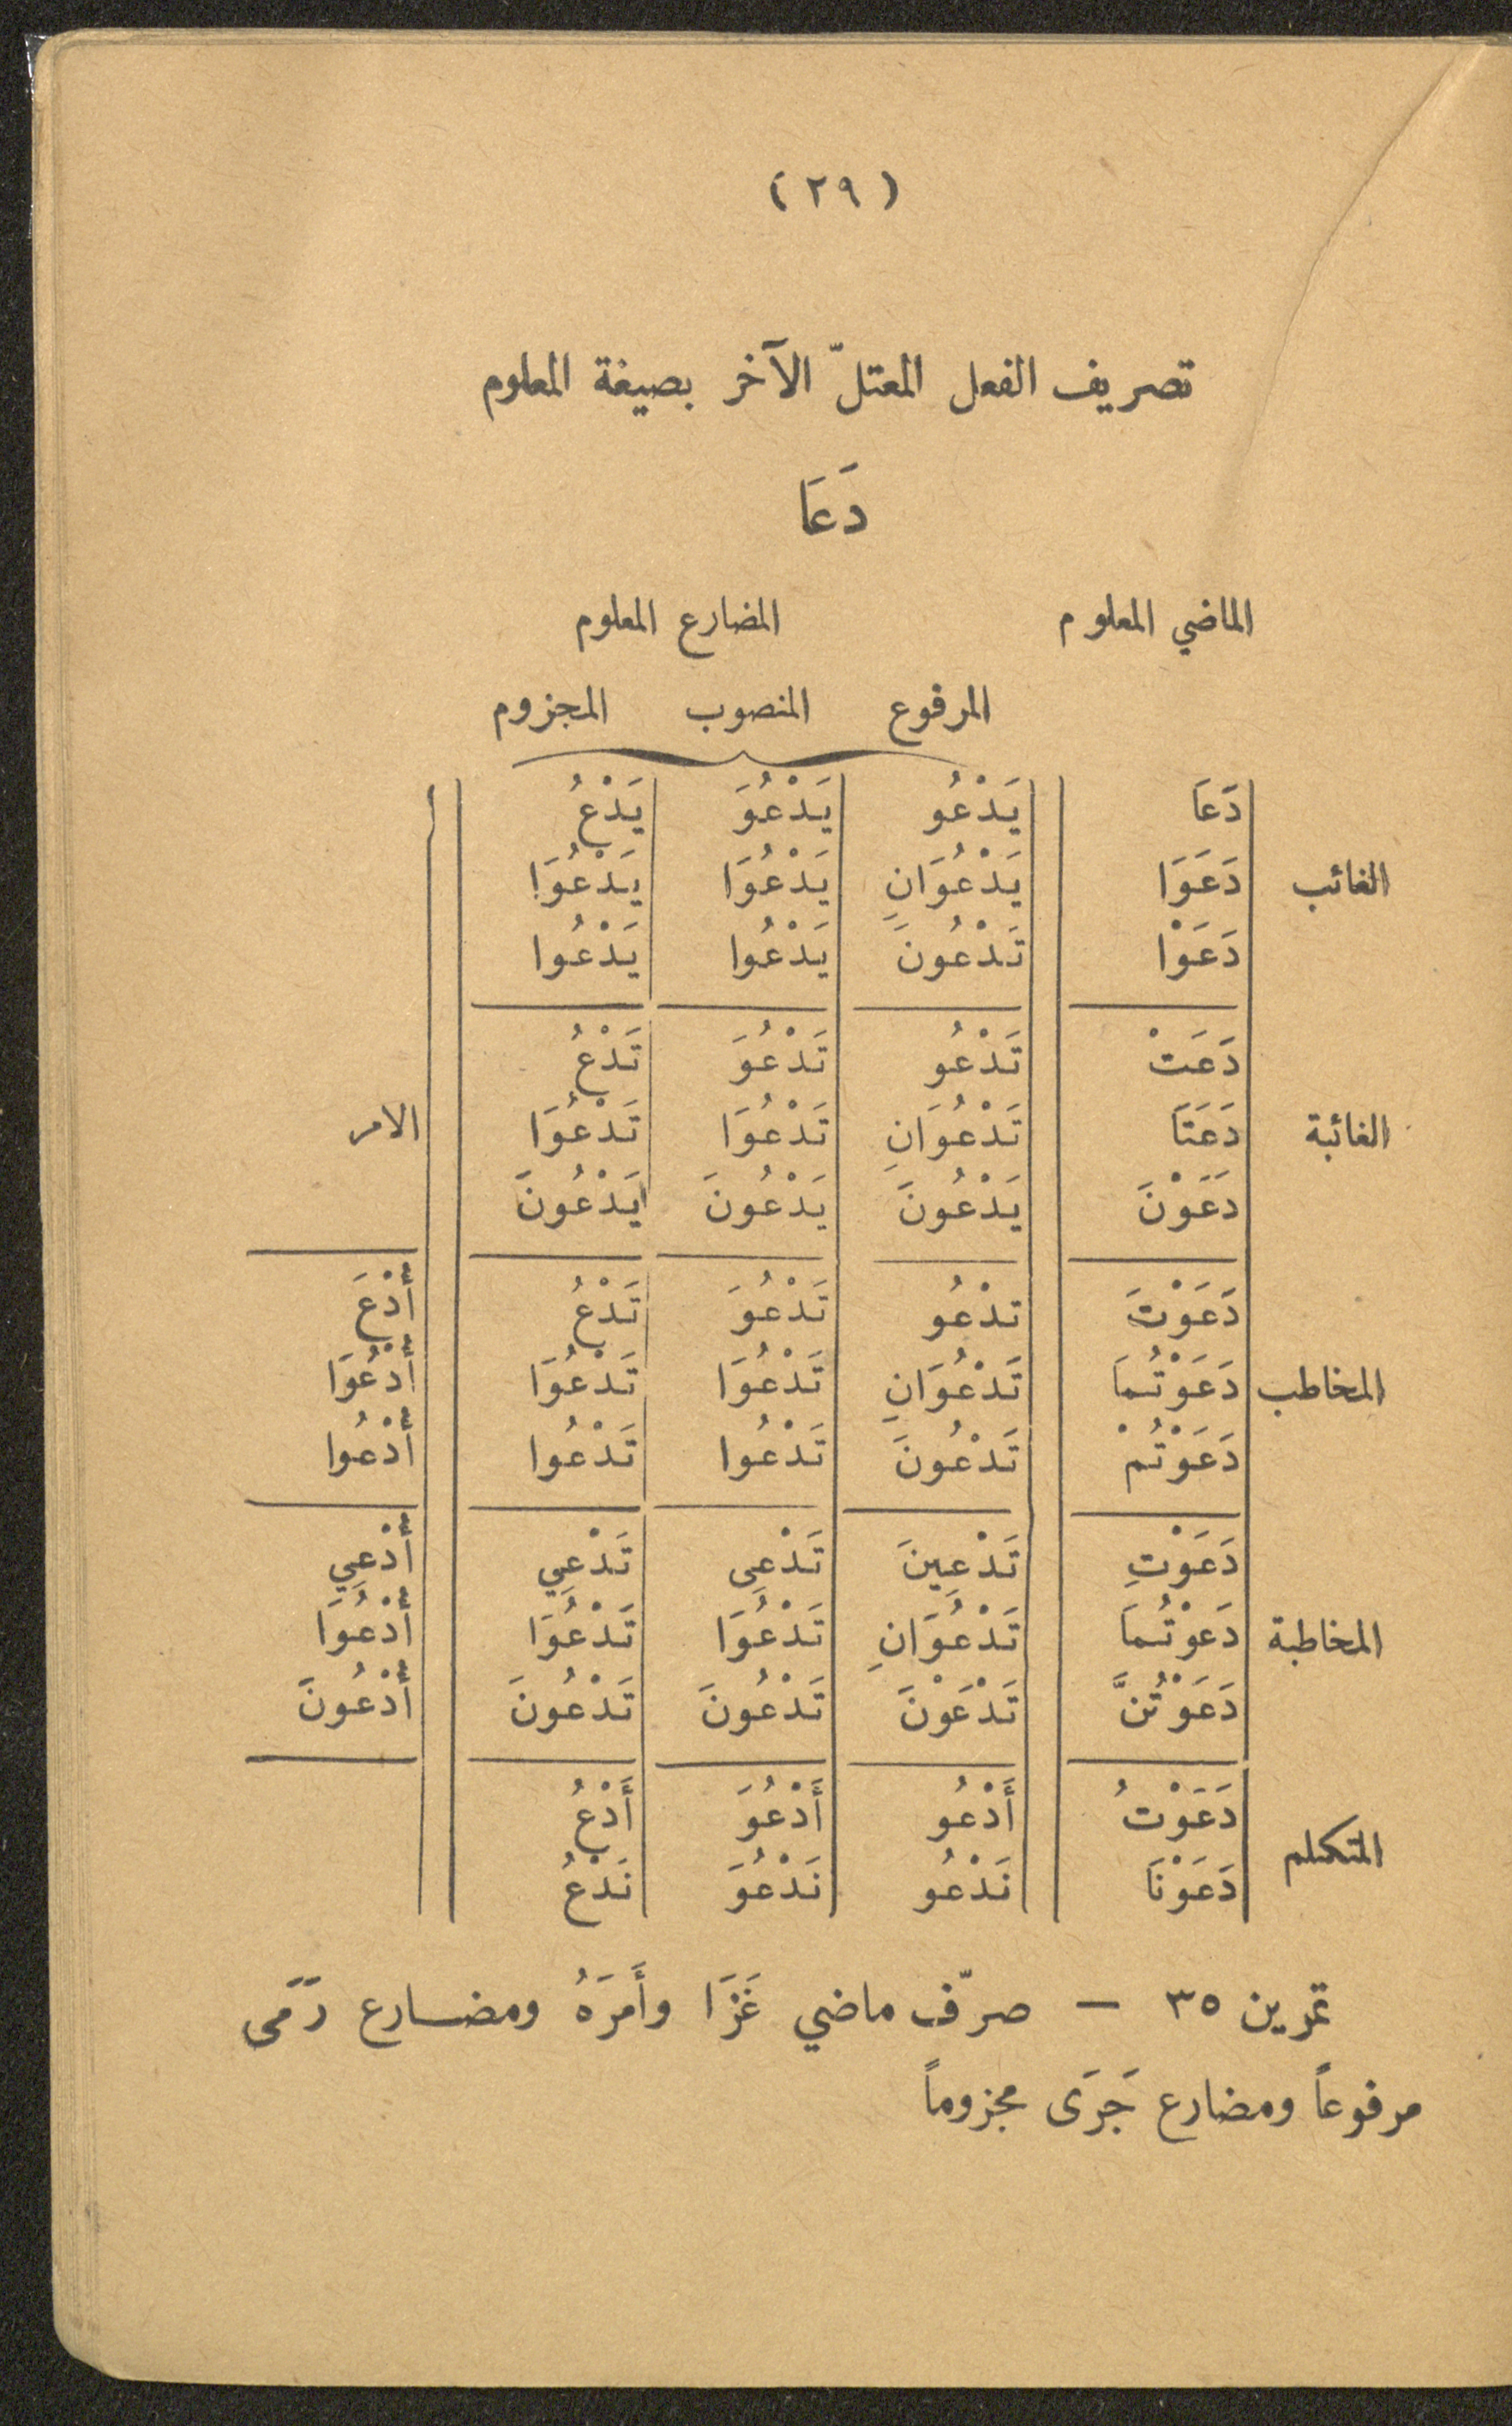 (٢٩)
تصريف الفعل المعتلّ الآخر بصيغة المعلوم
دَعَا
الماضي المعلوم المضارع المعلوم
المرفوع المنصوب المجزوم
دَعَا يَدْعُو يَدْعُوَ يَدْعُ
الغائب دَعَوَا يَدْعُوَانِ يَدْعُوَا يَدْعُوَا
دَعَوْا تَدْعُونَ يَدْعُوا يَدْعُوا
دَعَتْ تَدْعُو تَدْعُوَ تَدْعُ
الغائبة دَعَتَا تَدْعُوَانِ تَدْعُوَا تَدْعُوَا الامر
دَعَوْنَ يَدْعُونَ يَدْعُونَ يَدْعُونَ
دَعَوْتَ تدْعُو تَدْعُوَ تَدْعُ أُدْعَ
المخاطب دَعَوْتُمَا تَدْعُوَانِ تَدْعُوَا تَدْعُوَا أُدْعُوَا
دَعَوْتُمْ تَدْعُونَ تَدْعُوا تَدْعُوا أُدْعُوا
دَعَوْتِ تَدْعِينَ تَدْعِى تَدْعِي أُدْعِي
المخاطبة دَعَوْتُمَا تَدْعُوَانِ تَدْعُوَا تَدْعُوَا أُدْعُوَا
دَعَوْتُنَّ تَدْعَوْنَ تَدْعُونَ تَدْعُونَ أُدْعُونَ
دَعَوْتُ أَدْعُو أَدْعُوَ أَدْعُ
المتكلم دَعَوْنَا نَدْعُو نَدْعُوَ نَدْعُ
تمرين ٣٥ — صرّف ماضي غَزَا وأَمرَهُ ومضارع رَمَى
مرفوعاً ومضارع جَرَى مجزوماً